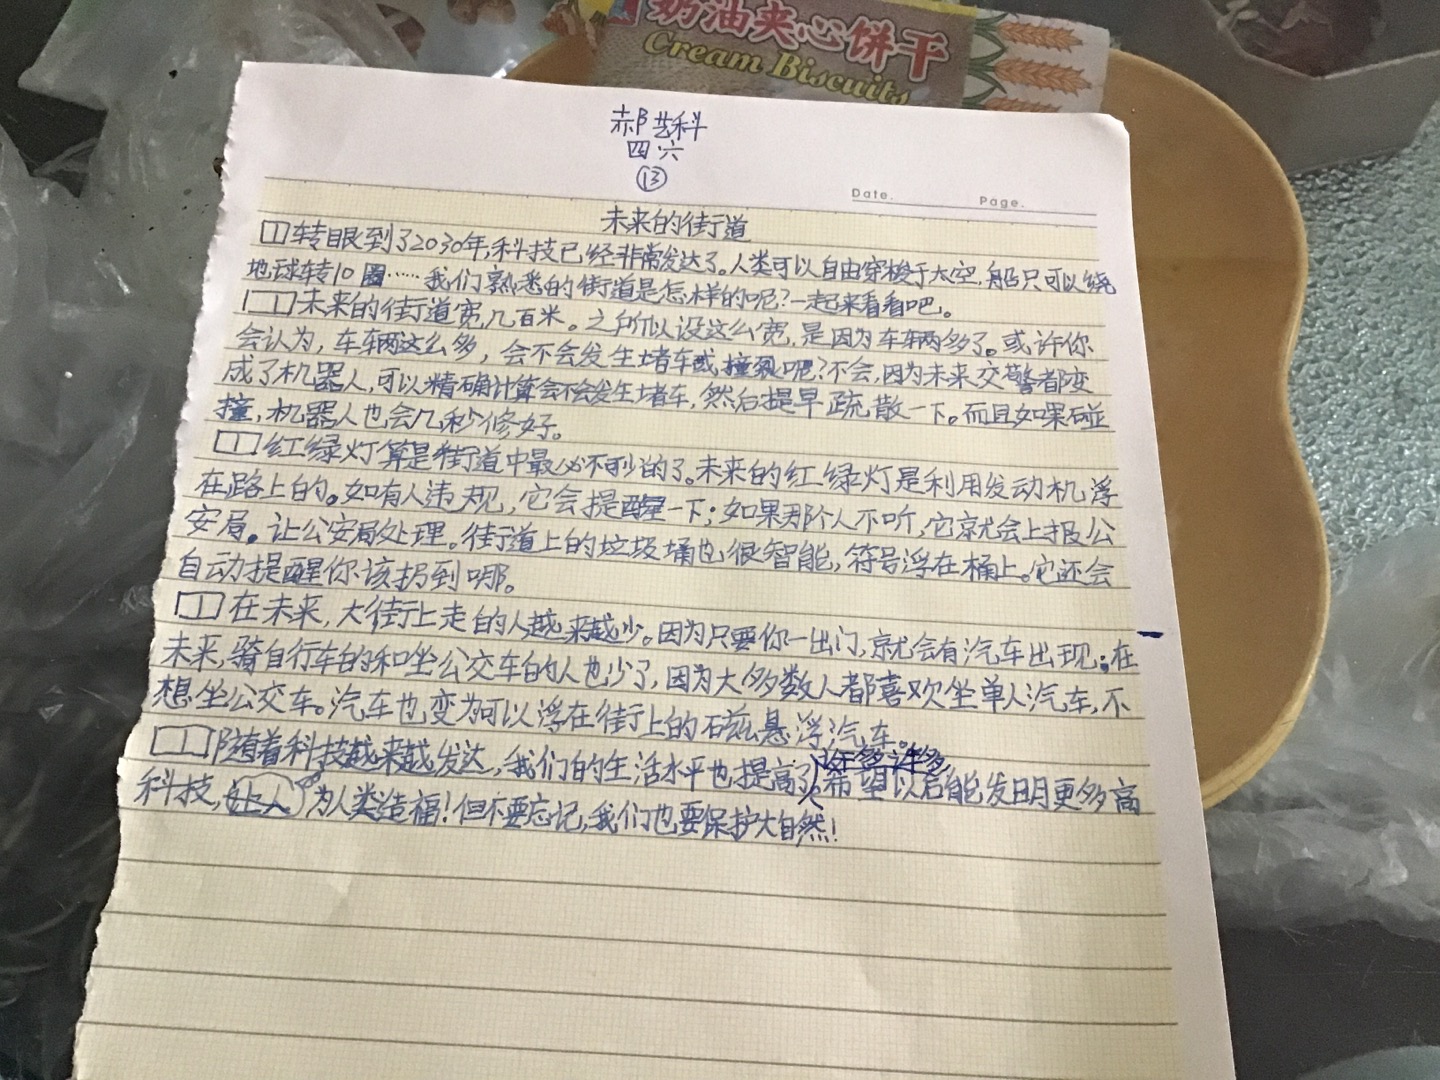 奶油夹心饼干
Cream Biscuits
郝艺科
四.六
⑬
Date.
Page.
未来的街道
转眼到了2030年,科技已经非常发达了。人类可以自由穿梭于太空,船只可以绕
地球转10圈……我们熟悉的街道是怎样的呢?一起来看看吧。
未来的街道宽几百米。之所以设这么宽,是因为车辆多了。或许你
会认为,车辆这么多,会不会发生堵车或撞裂呢?不会,因为未来交警都变
成了机器人,可以精确计算会不会发生堵车,然后提早疏散一下。而且如果碰
撞,机器人也会几秒修好。
红绿灯算是街道中最必不可少的了。未来的红绿灯是利用发动机浮
在路上的。如有人违规,它会提醒一下;如果那个人不听,它就会上报公
安局。让公安局处理。街道上的垃圾桶也很智能,符号浮在桶上。它还会
自动提醒你该扔到哪。
在未来,大街上走的人越来越少。因为只要你一出门,就会有汽车出现;在
未来,骑自行车的和坐公交车的人也少了,因为大多数人都喜欢坐单人汽车,不
想坐公交车。汽车也变为可以浮在街上的磁悬浮汽车。
随着科技越来越发达,我们的生活水平也提高了,希望以后能发明更多高
科技,为人类造福!但不要忘记,我们也要保护大自然!